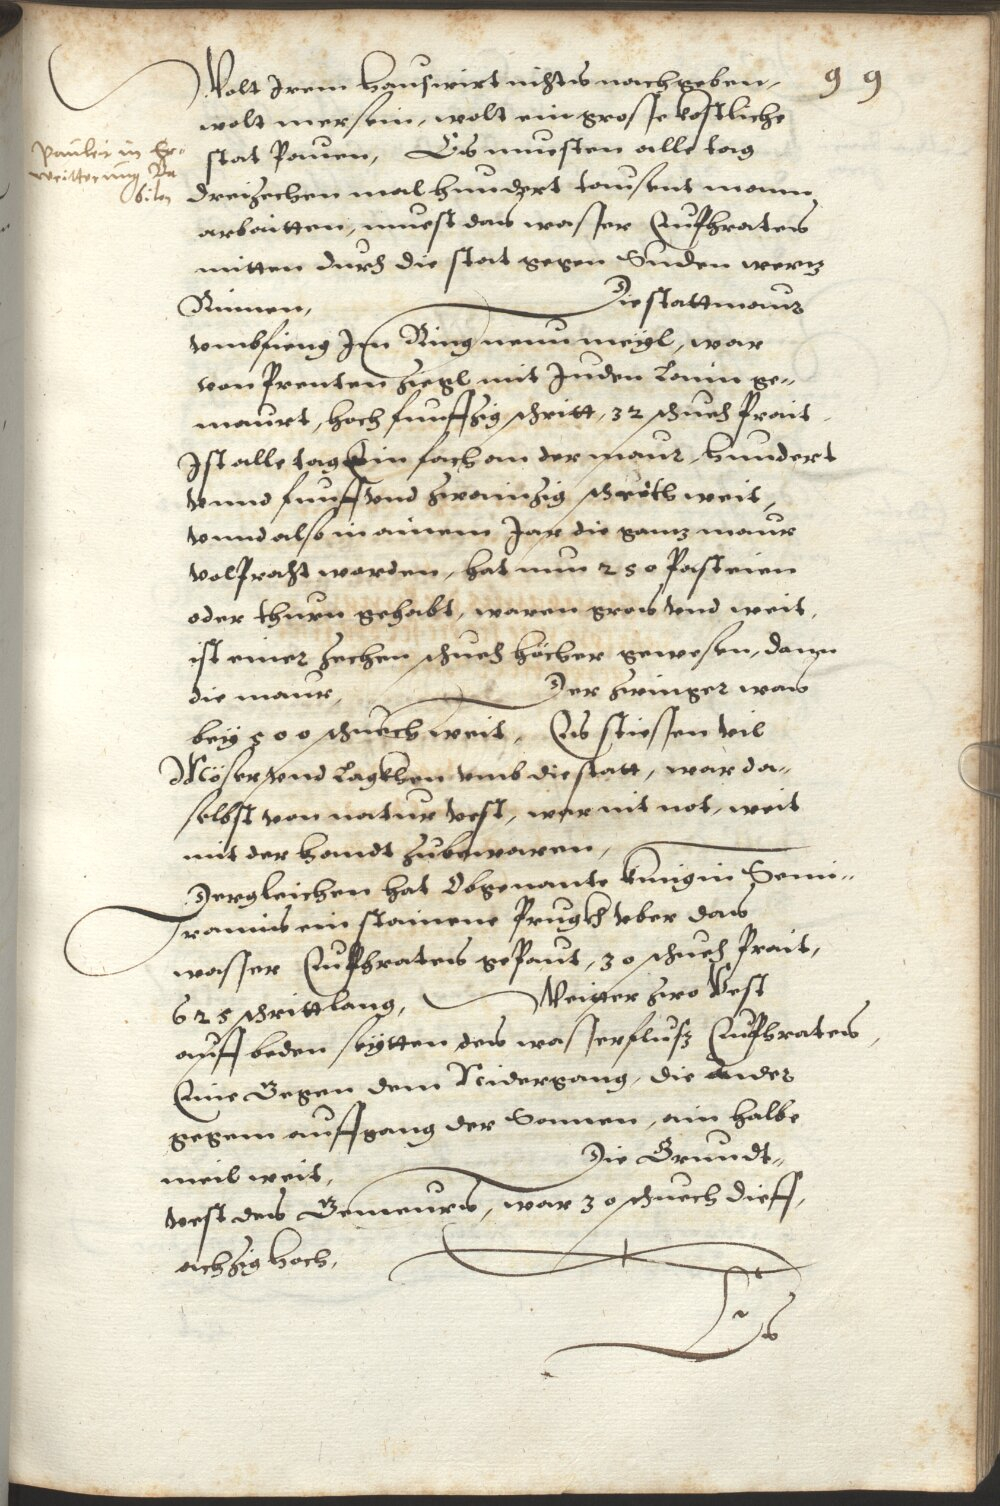 99
Wolt Irem hauswirt nichts nachgeben,
wolt mer sein, wolt ein grosse kostliche
stat Pauen, Es muesten alle tag
dreizechen mal hundert tausent mann
arbaitten, muest das wasser Euphrates
mitten durch die stat gegen Suden wertz
Rinnen, Die stattmaur
vmbfieng Im Ring neun meyl, war
von Prenten ziegl mit Juden Laim ge-
maurt, hoch funffzig schritt, 32 schuech Prait
Ist alle tag Ein fach an der maur, hundert
vnnd funff vnd zwainzig schritt weit,
vnnd also in ainem Jar die gantz maur
volPracht worden, hat nun 250 Pasteien
oder thurn gehabt, waren gros vnd weit,
ist einer zechen schuech höcher gewesen, dann
die maur, Der zwinger was
bey 500 schuech weit, Es stiessen vil
Möser vnd Lagkhen vmb die statt, war da-
selbst von natur vest, war nit not, weit
mit der handt zubewaren,
Dergleichen hat Obgenante kunigin Semi-
ramis ein stainene Prugkh vber das
wasser Euphrates gePaut, 30 schuech Prait,
625 schritt lang, Weitter zwo Vest
auff beden seytten des wasserflusz Euphrates,
Eine Gegen dem Nidergang, die ander
gegem auffgang der Sonnen, ain halbe
meil weit, Die Grundt-
vest des Gemeurs, war 30 schuech dieff,
achzig hoch,
Es
Pauler in Er-
weitterung Ba
bilon